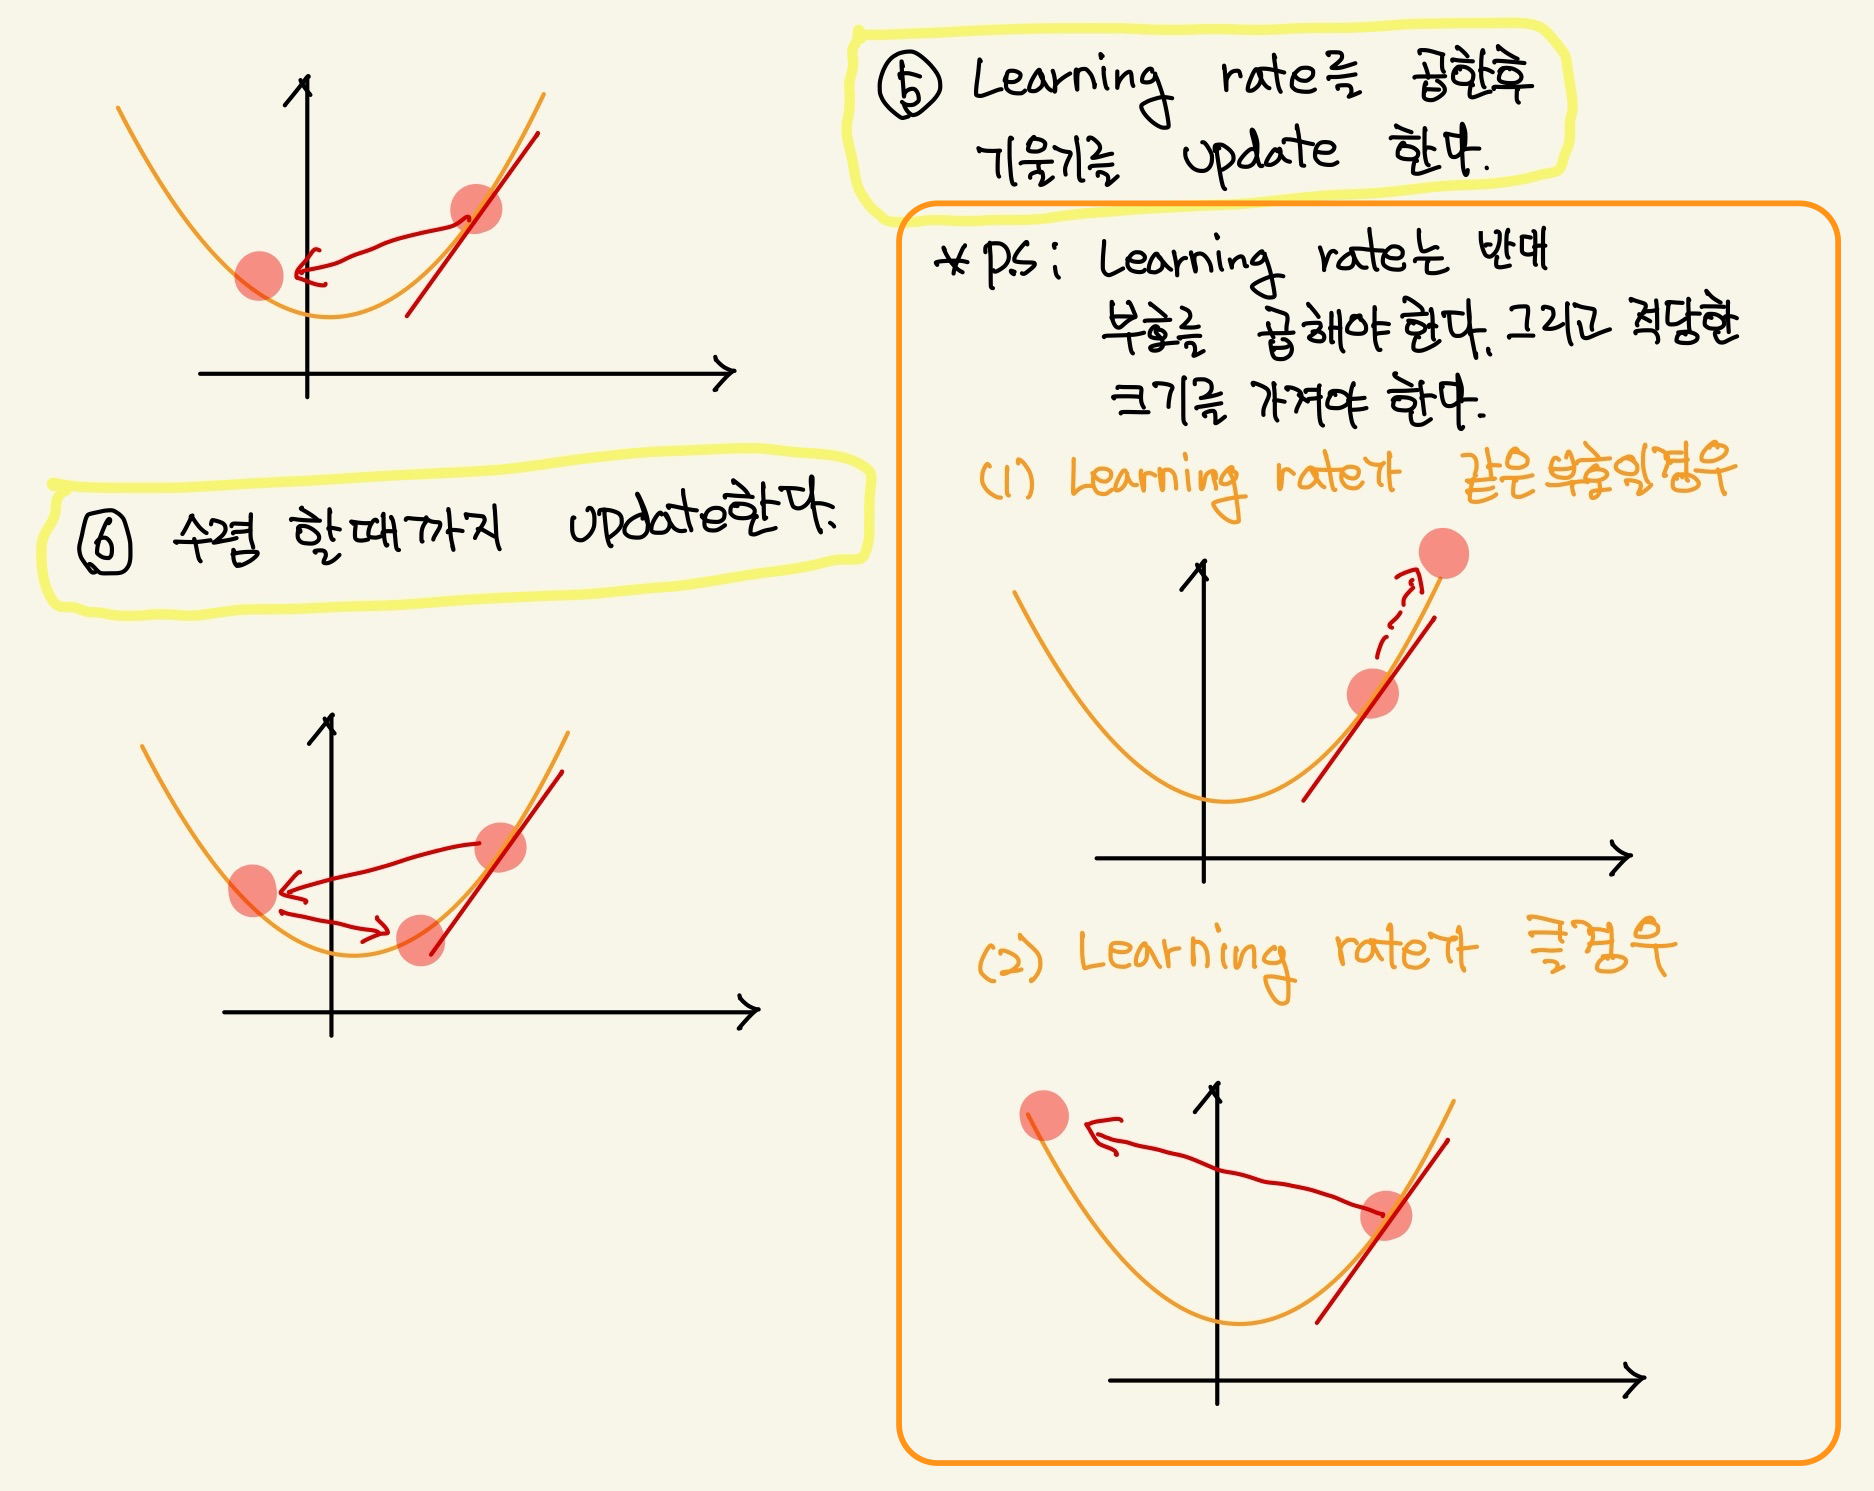 ⑤ Learning rate를 곱한후
기울기를 update 한다.
*p.s : Learning rate는 반대
부호를 곱해야 한다. 그리고 적당한
크기를 가져야 한다.
(1) Learning rate가 같은 부호일경우
(2) Learning rate가 클경우
⑥ 수렴 할때까지 update한다.